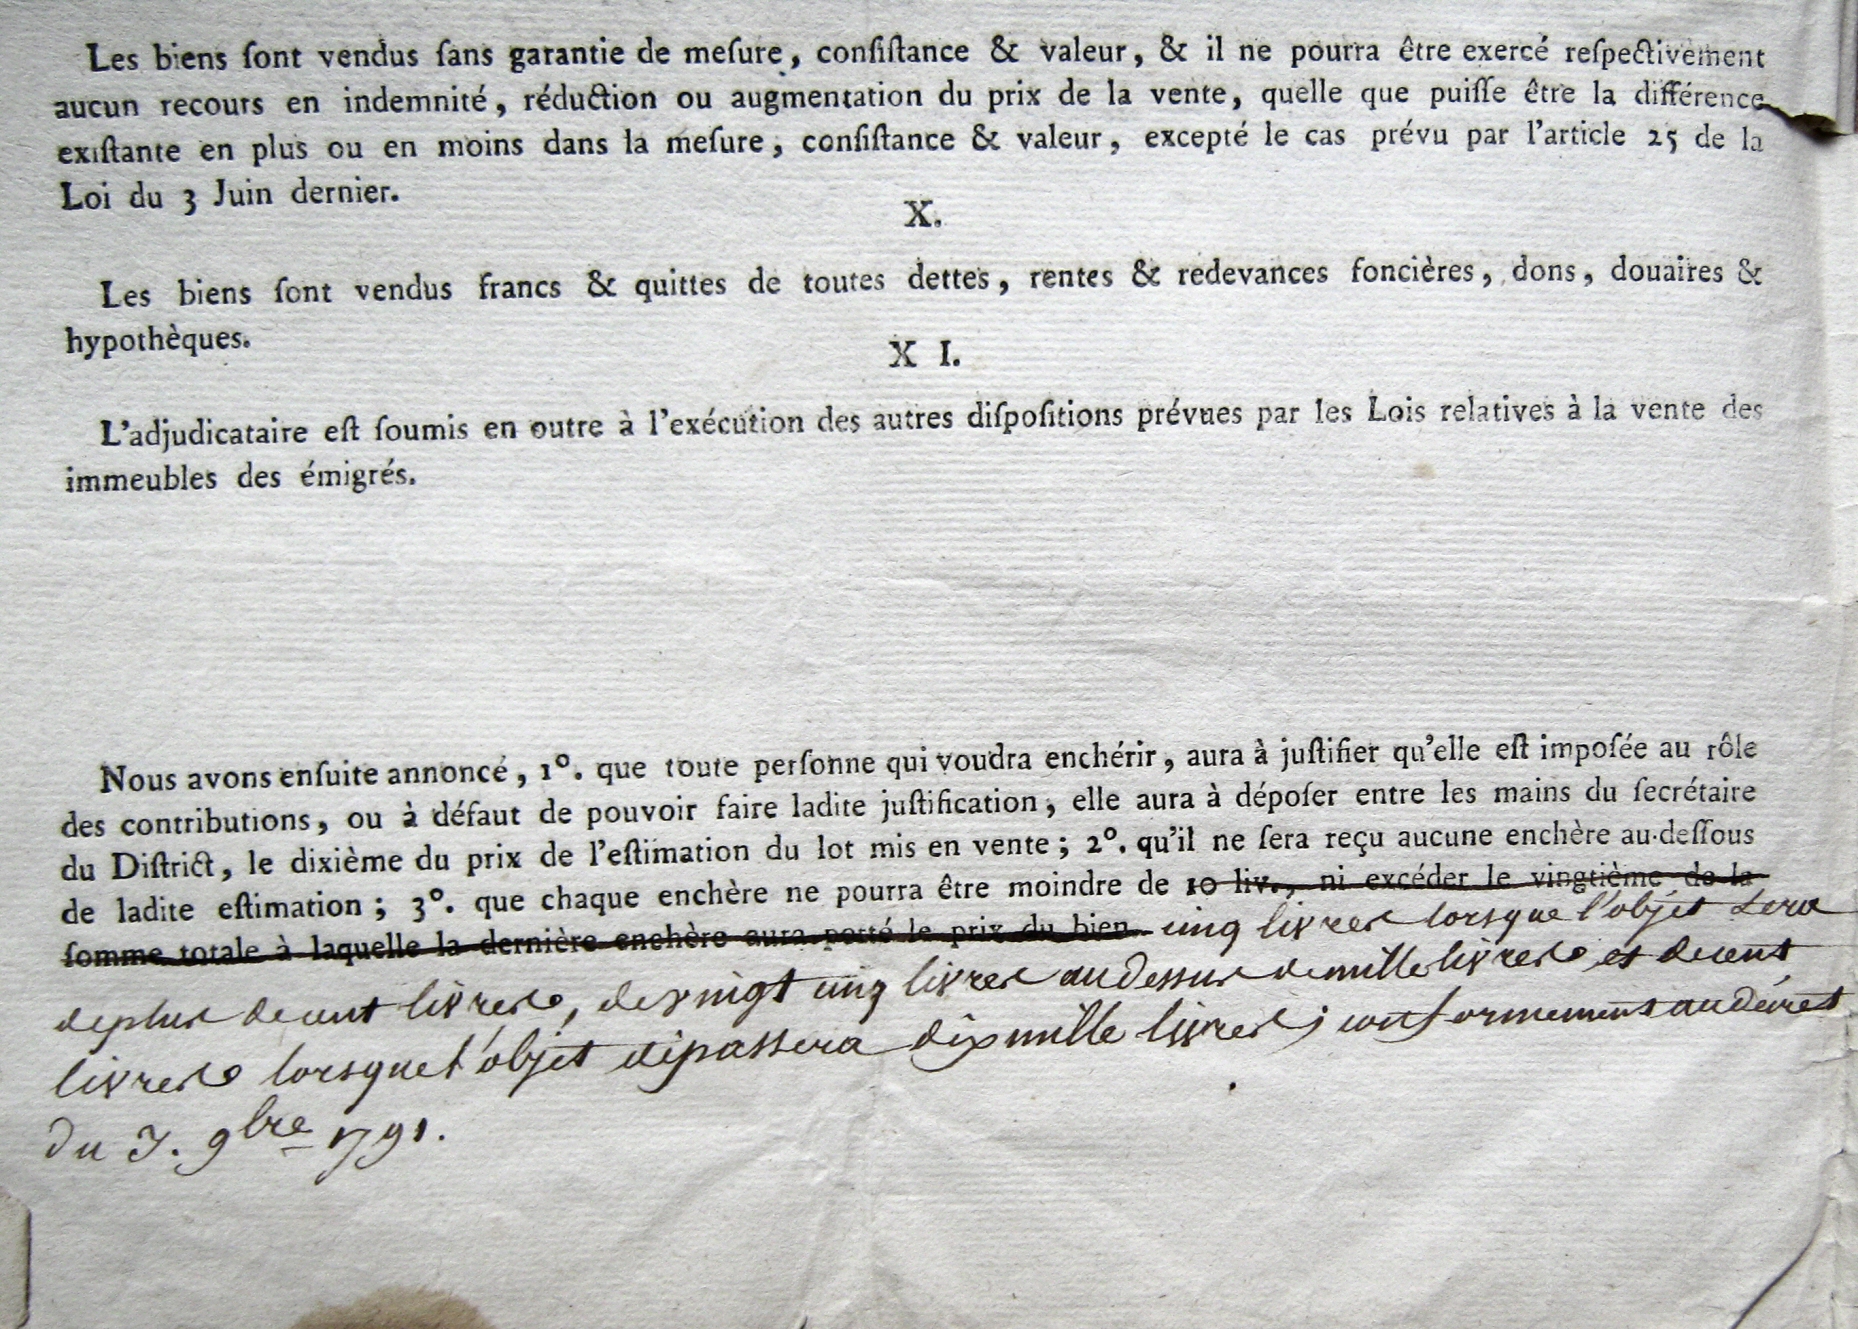 Les biens ſont vendus ſans garantie de meſure, conſiſtance & valeur, & il ne pourra être exercé reſpectivement
aucun recours en indemnité, réduction ou augmentation du prix de la vente, quelle que puiſſe être la différence
exiſtante en plus ou en moins dans la meſure, conſiſtance & valeur, excepté le cas prévu par l'article 25 de la
Loi du 3 Juin dernier.
X.
Les biens ſont vendus francs & quittes de toutes dettes, rentes & redevances foncières, dons, douaires &
hypothèques.
X I.
L'adjudicataire eſt ſoumis en outre à l'exécution des autres diſpoſitions prévues par les Lois relatives à la vente des
immeubles des émigrés.
Nous avons enſuite annoncé, 1°. que toute perſonne qui voudra enchérir, aura à juſtifier qu'elle eſt impoſée au rôle
des contributions, ou à défaut de pouvoir faire ladite juſtification, elle aura à dépoſer entre les mains du ſecrétaire
du Diſtrict, le dixième du prix de l'eſtimation du lot mis en vente; 2°. qu'il ne ſera reçu aucune enchère au-deſſous
de ladite eſtimation; 3°. que chaque enchère ne pourra être moindre de 10 liv., ni excéder le vingtième de la
ſomme totale à laquelle la dernière enchère aura porté le prix du bien. cinq livres lorsque l'objet sera
de plus de cent livres, de vingt cinq livres au dessus de mille livres et de cent
livres lorsque l'objet dépassera dix mille livres; conformement au décret
du 3. 9bre 1791.